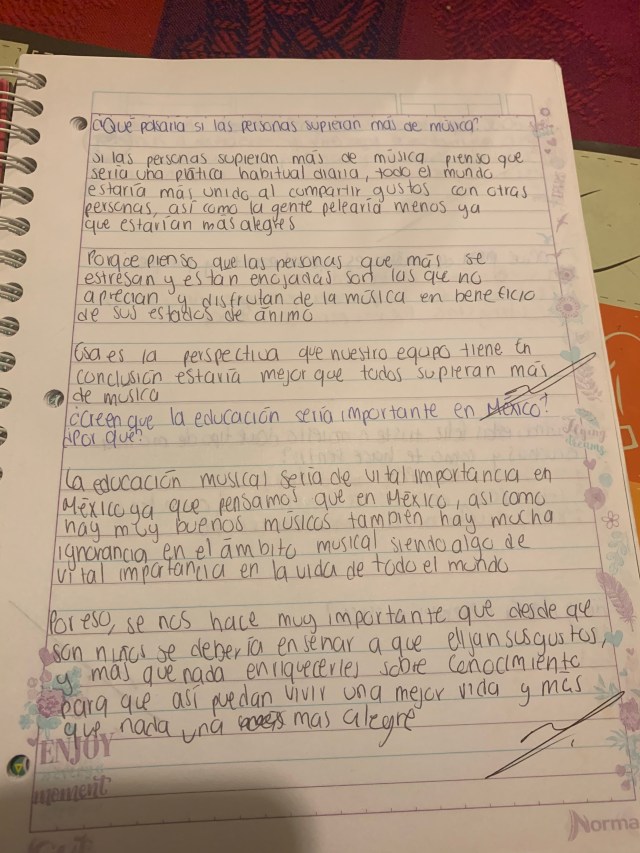 ¿Qué pasaría si las personas supieran más de música?
Si las personas supieran más de música pienso que
sería una plática habitual diaria, todo el mundo
estaría más unido al compartir gustos con otras
personas, así como la gente pelearía menos ya
que estarían mas alegres
Porque pienso que las personas que más se
estresan y están enojadas son las que no
aprecian y disfrutan de la música en beneficio
de sus estados de ánimo
Esa es la perspectiva que nuestro equipo tiene En
conclusión estaría mejor que todos supieran más
de musica
¿Creen que la educación sería importante en México?
¿Por qué?
La educación musical sería de vital importancia en
México ya que pensamos que en México, asi como
hay muy buenos músicos también hay mucha
ignorancia en el ámbito musical siendo algo de
vital importancia en la vida de todo el mundo
Por eso, se nos hace muy importante que desde que
son niños se debería enseñar a que elijan sus gustos,
y más que nada enriquecerles sobre conocimiento
para que así puedan vivir una mejor vida y más
que nada una mas alegre
ENJOY
moment
Norma